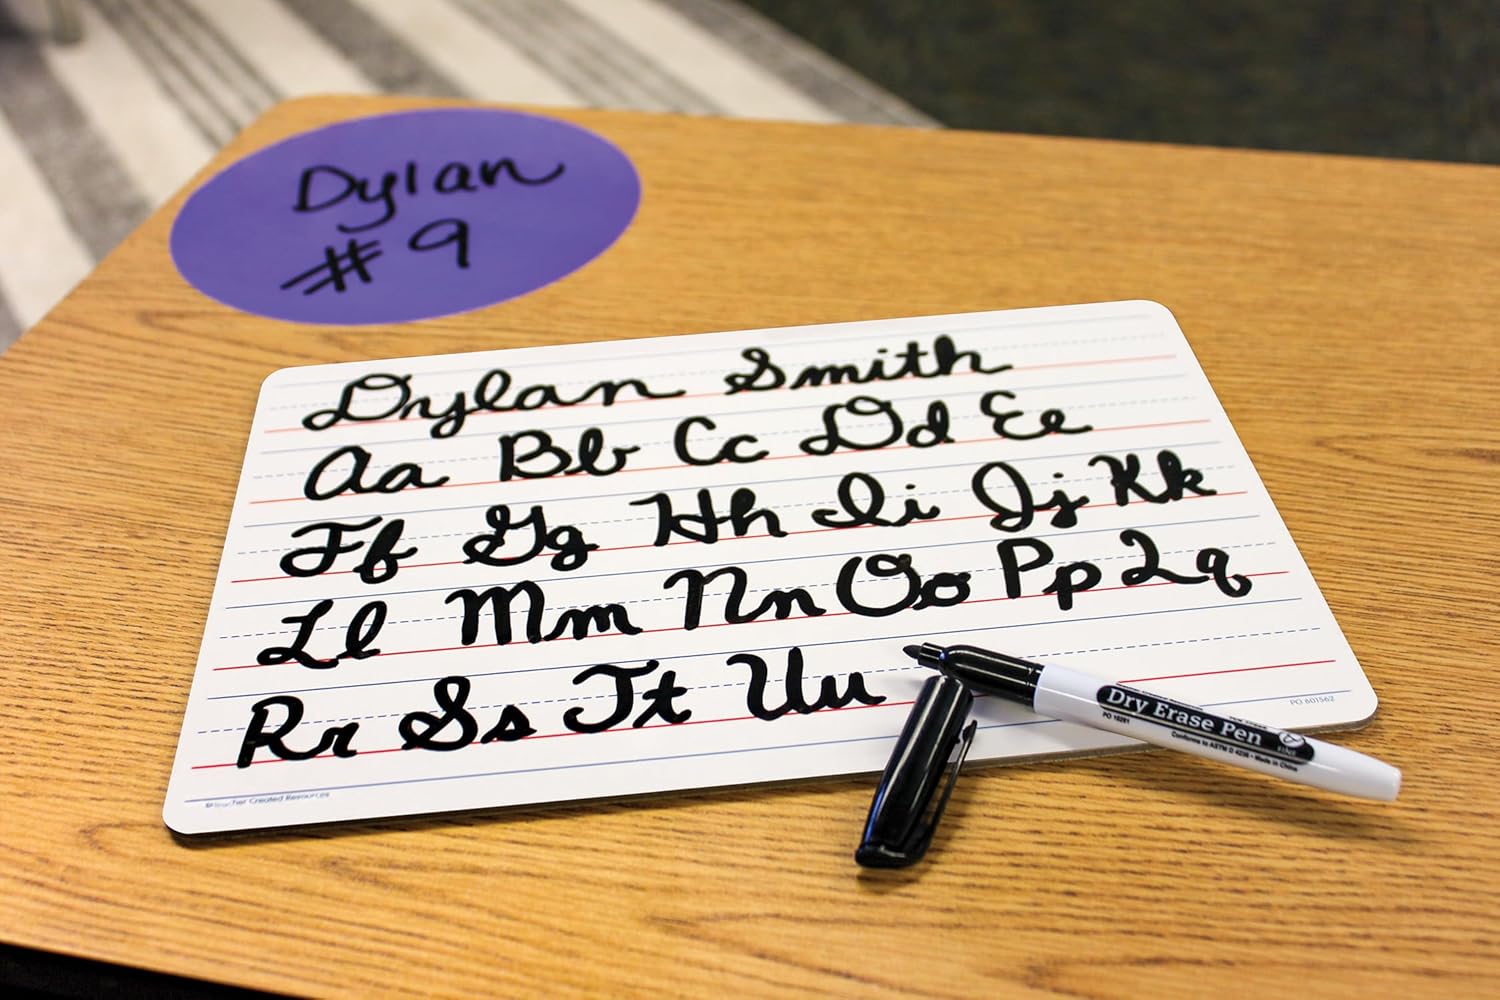 Dylan
# 9
Dylan Smith
Aa Bb Cc Dd Ee
Ff Gg Hh Ii Jj Kk
Ll Mm Nn Oo Pp Qq
Rr Ss Tt Uu
Dry Erase Pen
PO 10281
Conforms to ASTM D 4236 • Made in China
PO 801562
©Teacher Created Resources